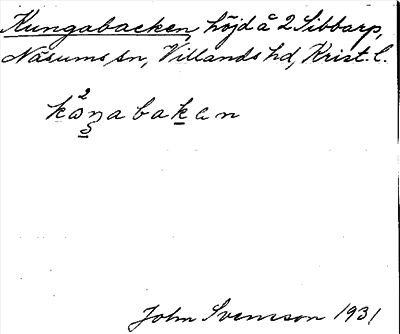 Kungabacken, höjd å 2 Sibbarp,
Näsums sn, Villands hd, Krist. l.
kωŋabakan
John Svensson 1931